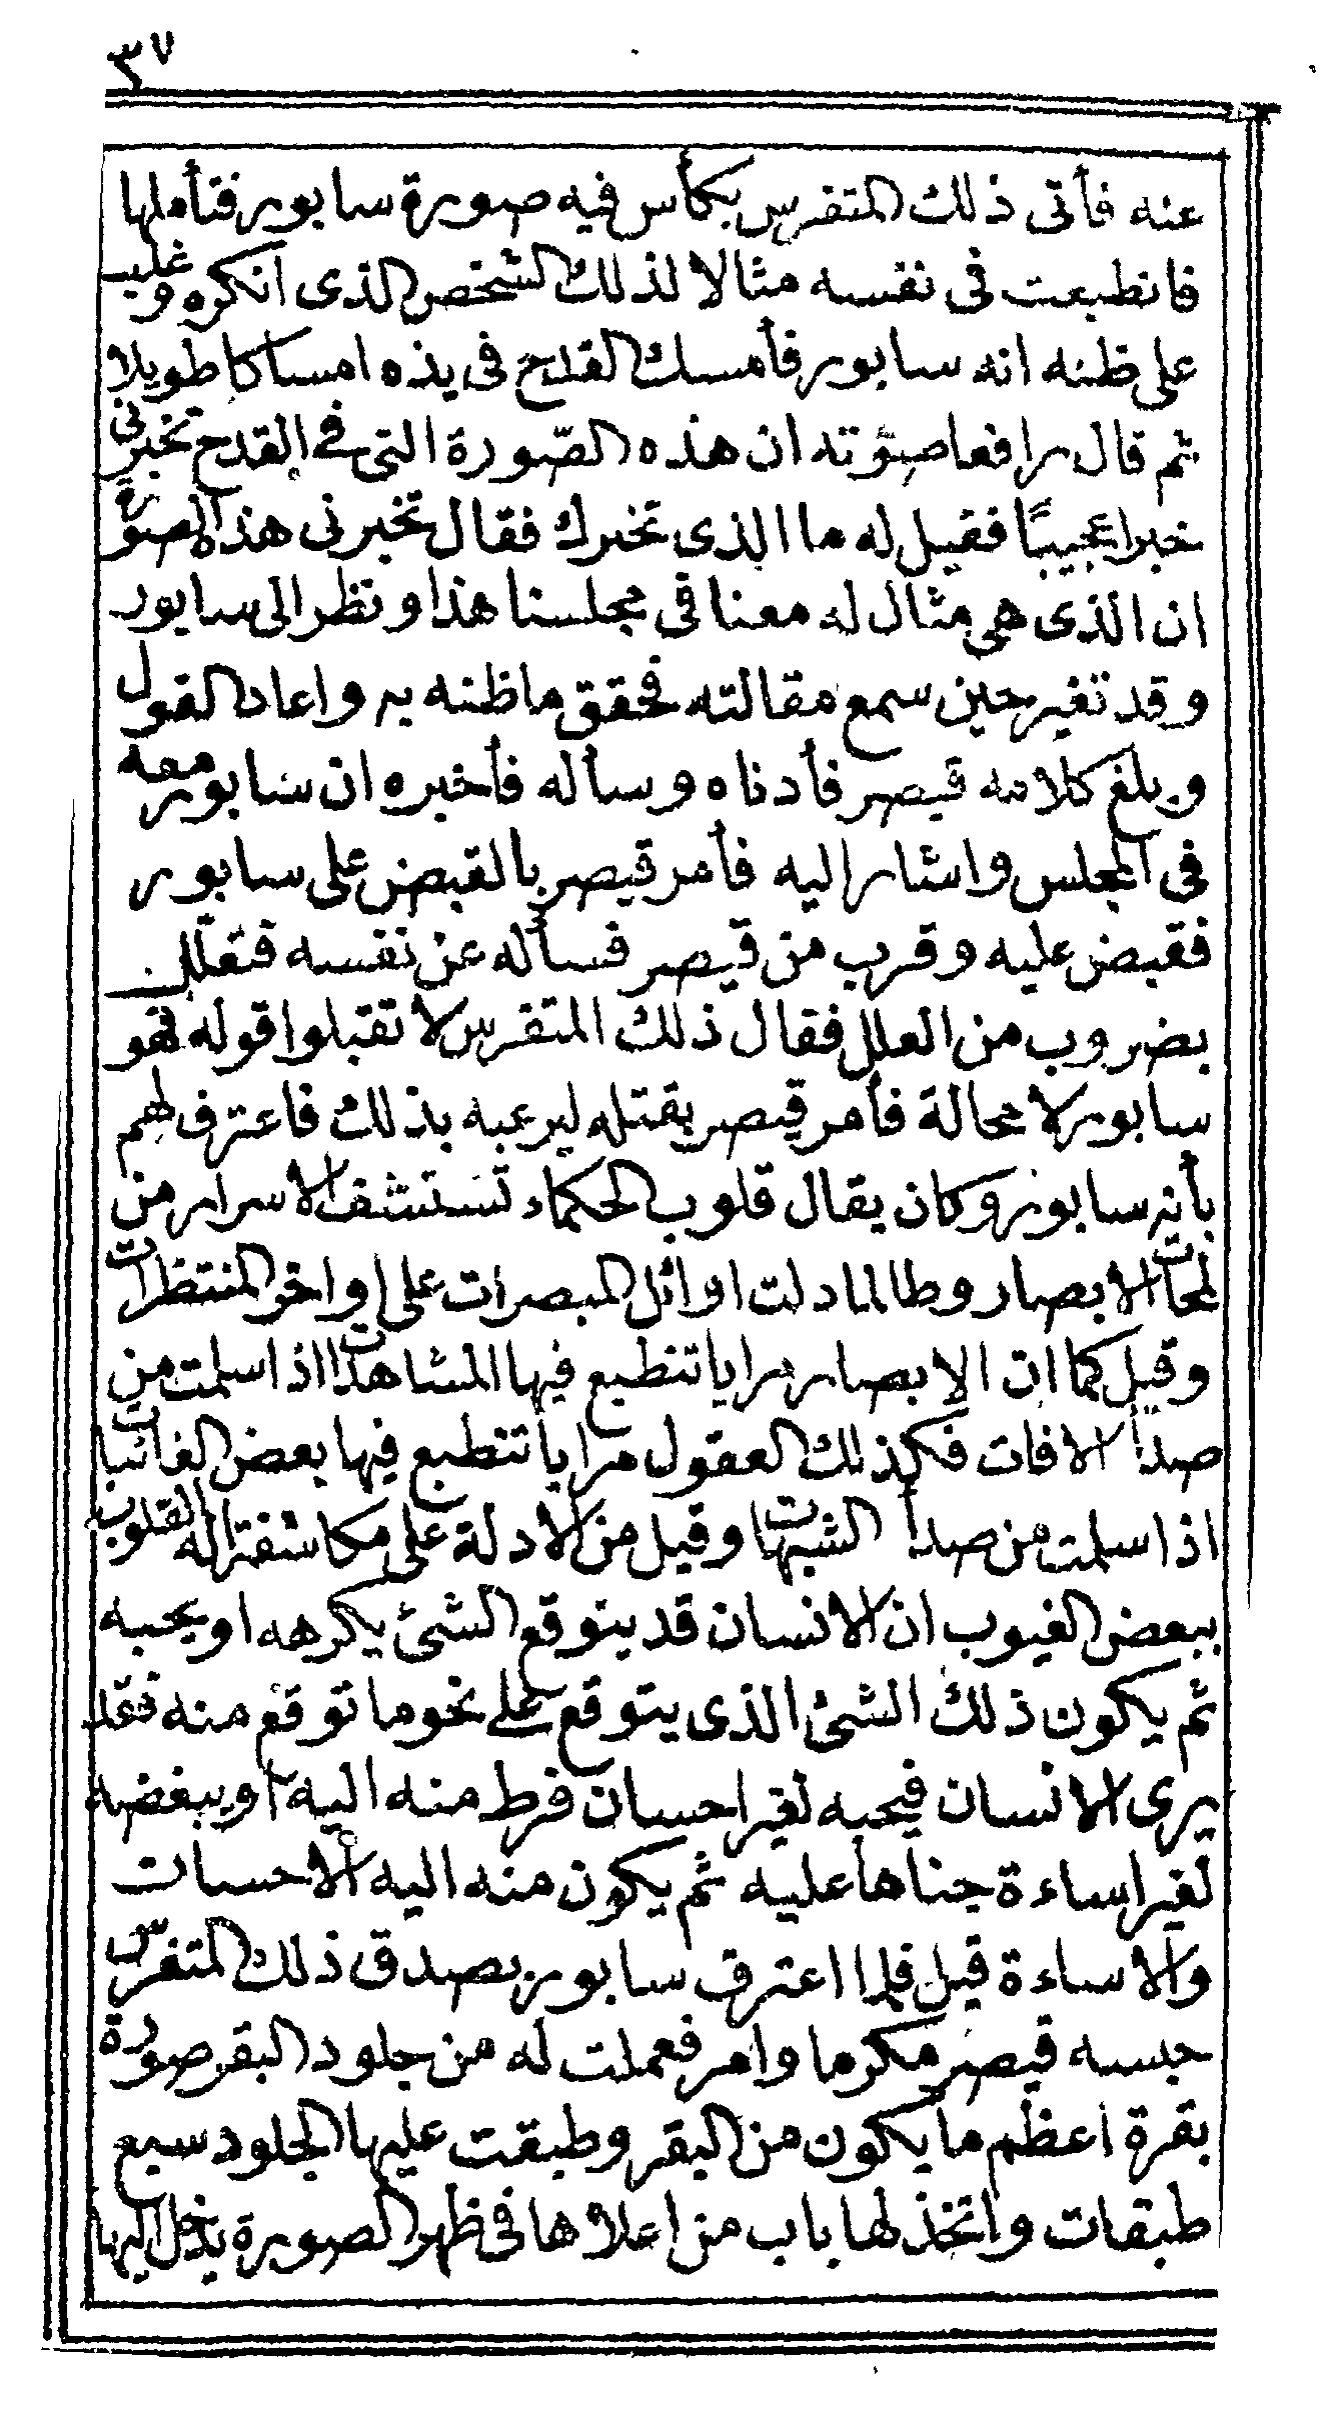 ٣٧
عنه فأتى ذلك المتفرس بكأس فيه صورة سابور فتأملها
فانطبعت في نفسه مثالا لذلك الشخص الذى انكره وغلب
على ظنه انه سابور فأمسك القدح في يذه امساكا طويلا
ثم قال رافعا صوته ان هذه الصّورة التى في القدح تخبرنى
خبرا عجيبًا فقيل له ما الذى تخبرك فقال تخبرنى هذه الصورة
ان الذى هى مثال له معنا في مجلسنا هذا ونظر الى سابور
وقد تغير حين سمع مقالته فحقق ما ظنه به واعاد القول
وبلغ كلامه قيصر فأدناه وسأله فأخبره ان سابور معه
في المجلس واشار اليه فأمر قيصر بالقبض على سابور
فقبض عليه وقرب من قيصر فسأله عن نفسه فتعلل
بضروب من العلل فقال ذلك المتفرس لا تقبلوا قوله فهو
سابور لا محالة فأمر قيصر بقتله ليرعبه بذلك فاعترف لهم
بأنه سابور وكان يقال قلوب الحكماء تستشف الاسرار من
لمحات الابصار وطالما دلت اوائل المبصرات على اواخر المنتظرات
وقيل كما ان الابصار مرايا تنطبع فيها المشاهدات اذا سلمت من
صدأ الافات فكذلك العقول مرايا تنطبع فيها بعض الغائبات
اذا سلمت من صدأ الشبهات وقيل من الادلة على مكاشفة اله القلوب
ببعض الغيوب ان الانسان قد يتوقع الشئ يكرهه او يحبه
ثم يكون ذلك الشئ الذى يتوقع على نحو ما توقع منه فقد
يرى الانسان فيحبه لغير احسان فرط منه اليه او يبغضه
لغير اساءة جناها عليه ثم يكون منه اليه الاحسان
والاساءة قيل فلما اعترف سابور بصدق ذلك المتفرّس
حبسه قيصر مكرما وامر فعملت له من جلود البقر صورة
بقرة اعظم ما يكون من البقر وطبقت عليها الجلود سبع
طبقات واتخذ لها باب من اعلاها في ظهر الصورة يدخل اليها